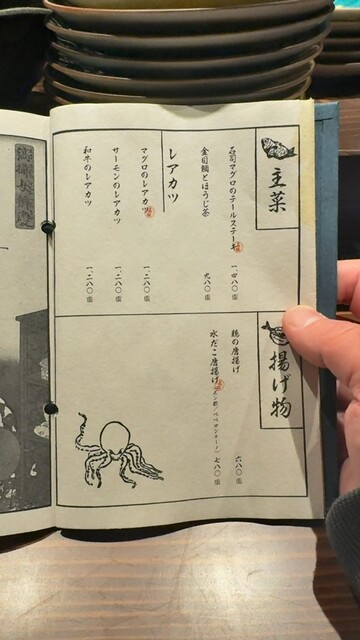 主菜
石司マグロのテールステーキ 一、四八〇
金目鯛とほうじ茶 九八〇
レアカツ
マグロのレアカツ 一、二八〇
サーモンのレアカツ 一、二八〇
和牛のレアカツ 一、二八〇
揚げ物
鶏の唐揚げ 六八〇
水だこ唐揚げ 七八〇